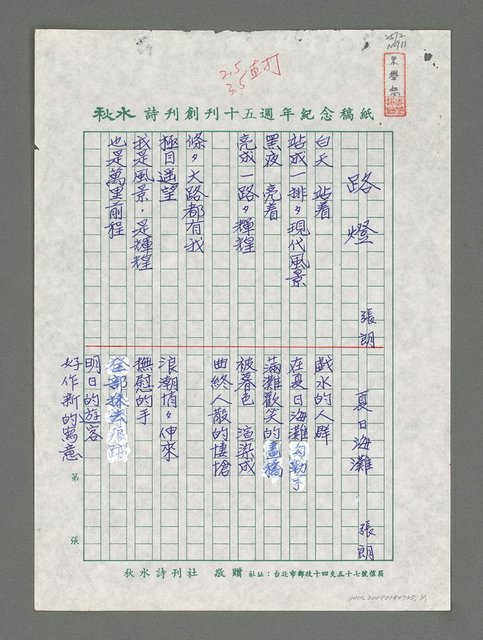 2572
N911
2.5
3.5直打
秋水 詩刊創刊十五週年紀念稿紙
路燈
張朗
白天 站着
站成一排々現代風景
黑夜 亮着
亮成一路々輝煌
條々大路都有我
極目遙望
我是風景,是輝煌
也是萬里前程
夏日海灘
張朗
戲水的人群
在夏日海灘勾勒了
滿灘歡笑的畫稿
被暮色 渲染成
曲終人散的悽愴
浪潮悄々伸來
撫慰的手
明日的遊客
好作新的寫意
第 張
秋水詩刊社 敬贈 社址:台北市郵政十四支五十七號信箱